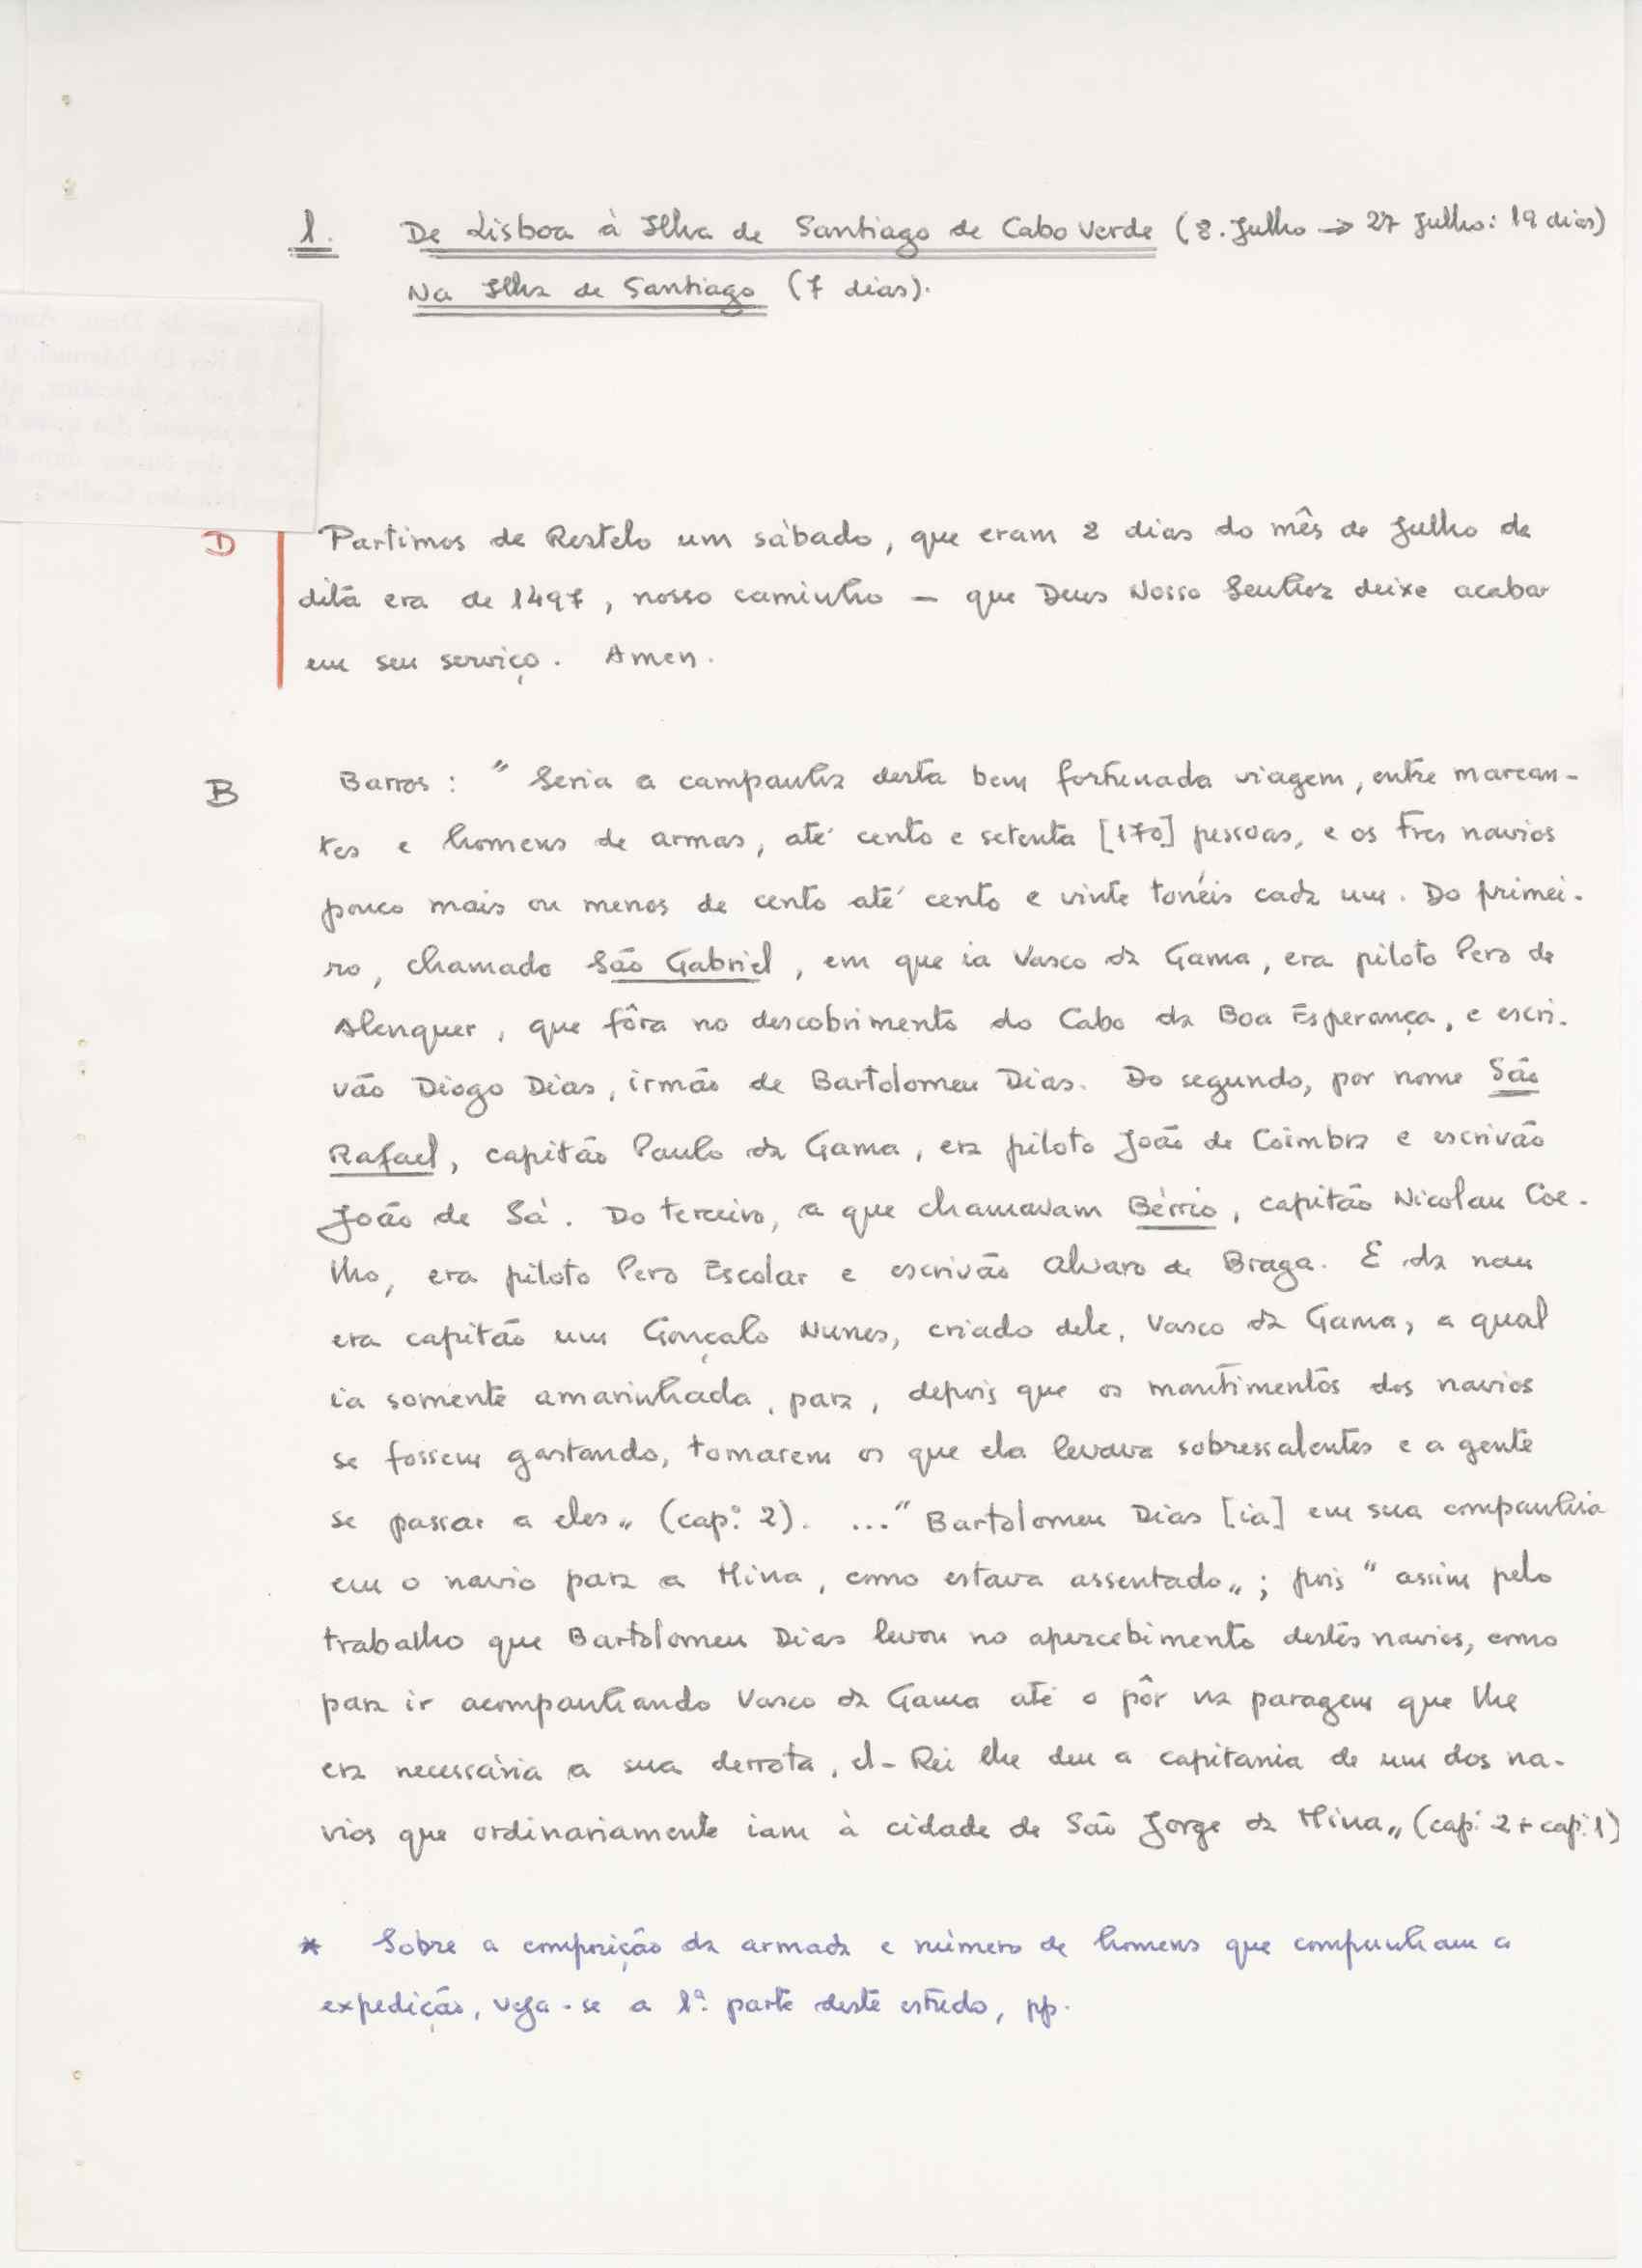 1. De Lisboa à Ilha de Santiago de Cabo Verde (8. Julho → 27 Julho: 19 dias)
Na Ilha de Santiago (7 dias).
D Partimos de Restelo um sábado, que eram 8 dias do mês de Julho da
dita era de 1497, nosso caminho – que Deus Nosso Senhor deixe acabar
em seu serviço. Amen.
B Barros: " Seria a campanhia desta bem fortunada viagem, entre marean-
tes e homens de armas, até cento e setenta [170] pessoas, e os tres navios
pouco mais ou menos de cento até cento e vinte tonéis cada um. Do primei-
ro, chamado São Gabriel, em que ia Vasco da Gama, era piloto Pero de
Alenquer, que fôra no descobrimento do Cabo da Boa Esperança, e escri-
vão Diogo Dias, irmão de Bartolomeu Dias. Do segundo, por nome São
Rafael, capitão Paulo da Gama, era piloto João de Coimbra e escrivão
João de Sá. Do terceiro, a que chamavam Bérrio, capitão Nicolau Coe-
lho, era piloto Pero Escolar e escrivão Alvaro de Braga. E da nau
era capitão um Gonçalo Nunes, criado dele, Vasco da Gama, a qual
ia somente amarinhada, para, depois que os mantimentos dos navios
se fossem gastando, tomarem os que ela levava sobressalentes e a gente
se passar a eles„ (cap.º 2). ..." Bartolomeu Dias [ia] em sua companhia
em o navio para a Mina, como estava assentado„; pois " assim pelo
trabalho que Bartolomeu Dias levou no apercebimento destes navios, como
para ir acompanhando Vasco da Gama até o pôr na paragem que lhe
era necessária a sua derrota, el-Rei lhe deu a capitania de um dos na-
vios que ordinariamente iam à cidade de São Jorge da Mina„ (cap.º 2 + cap.º 1)
* Sobre a composição da armada e número de homens que compunham a
expedição, veja-se a 1ª. parte deste estudo, pp.